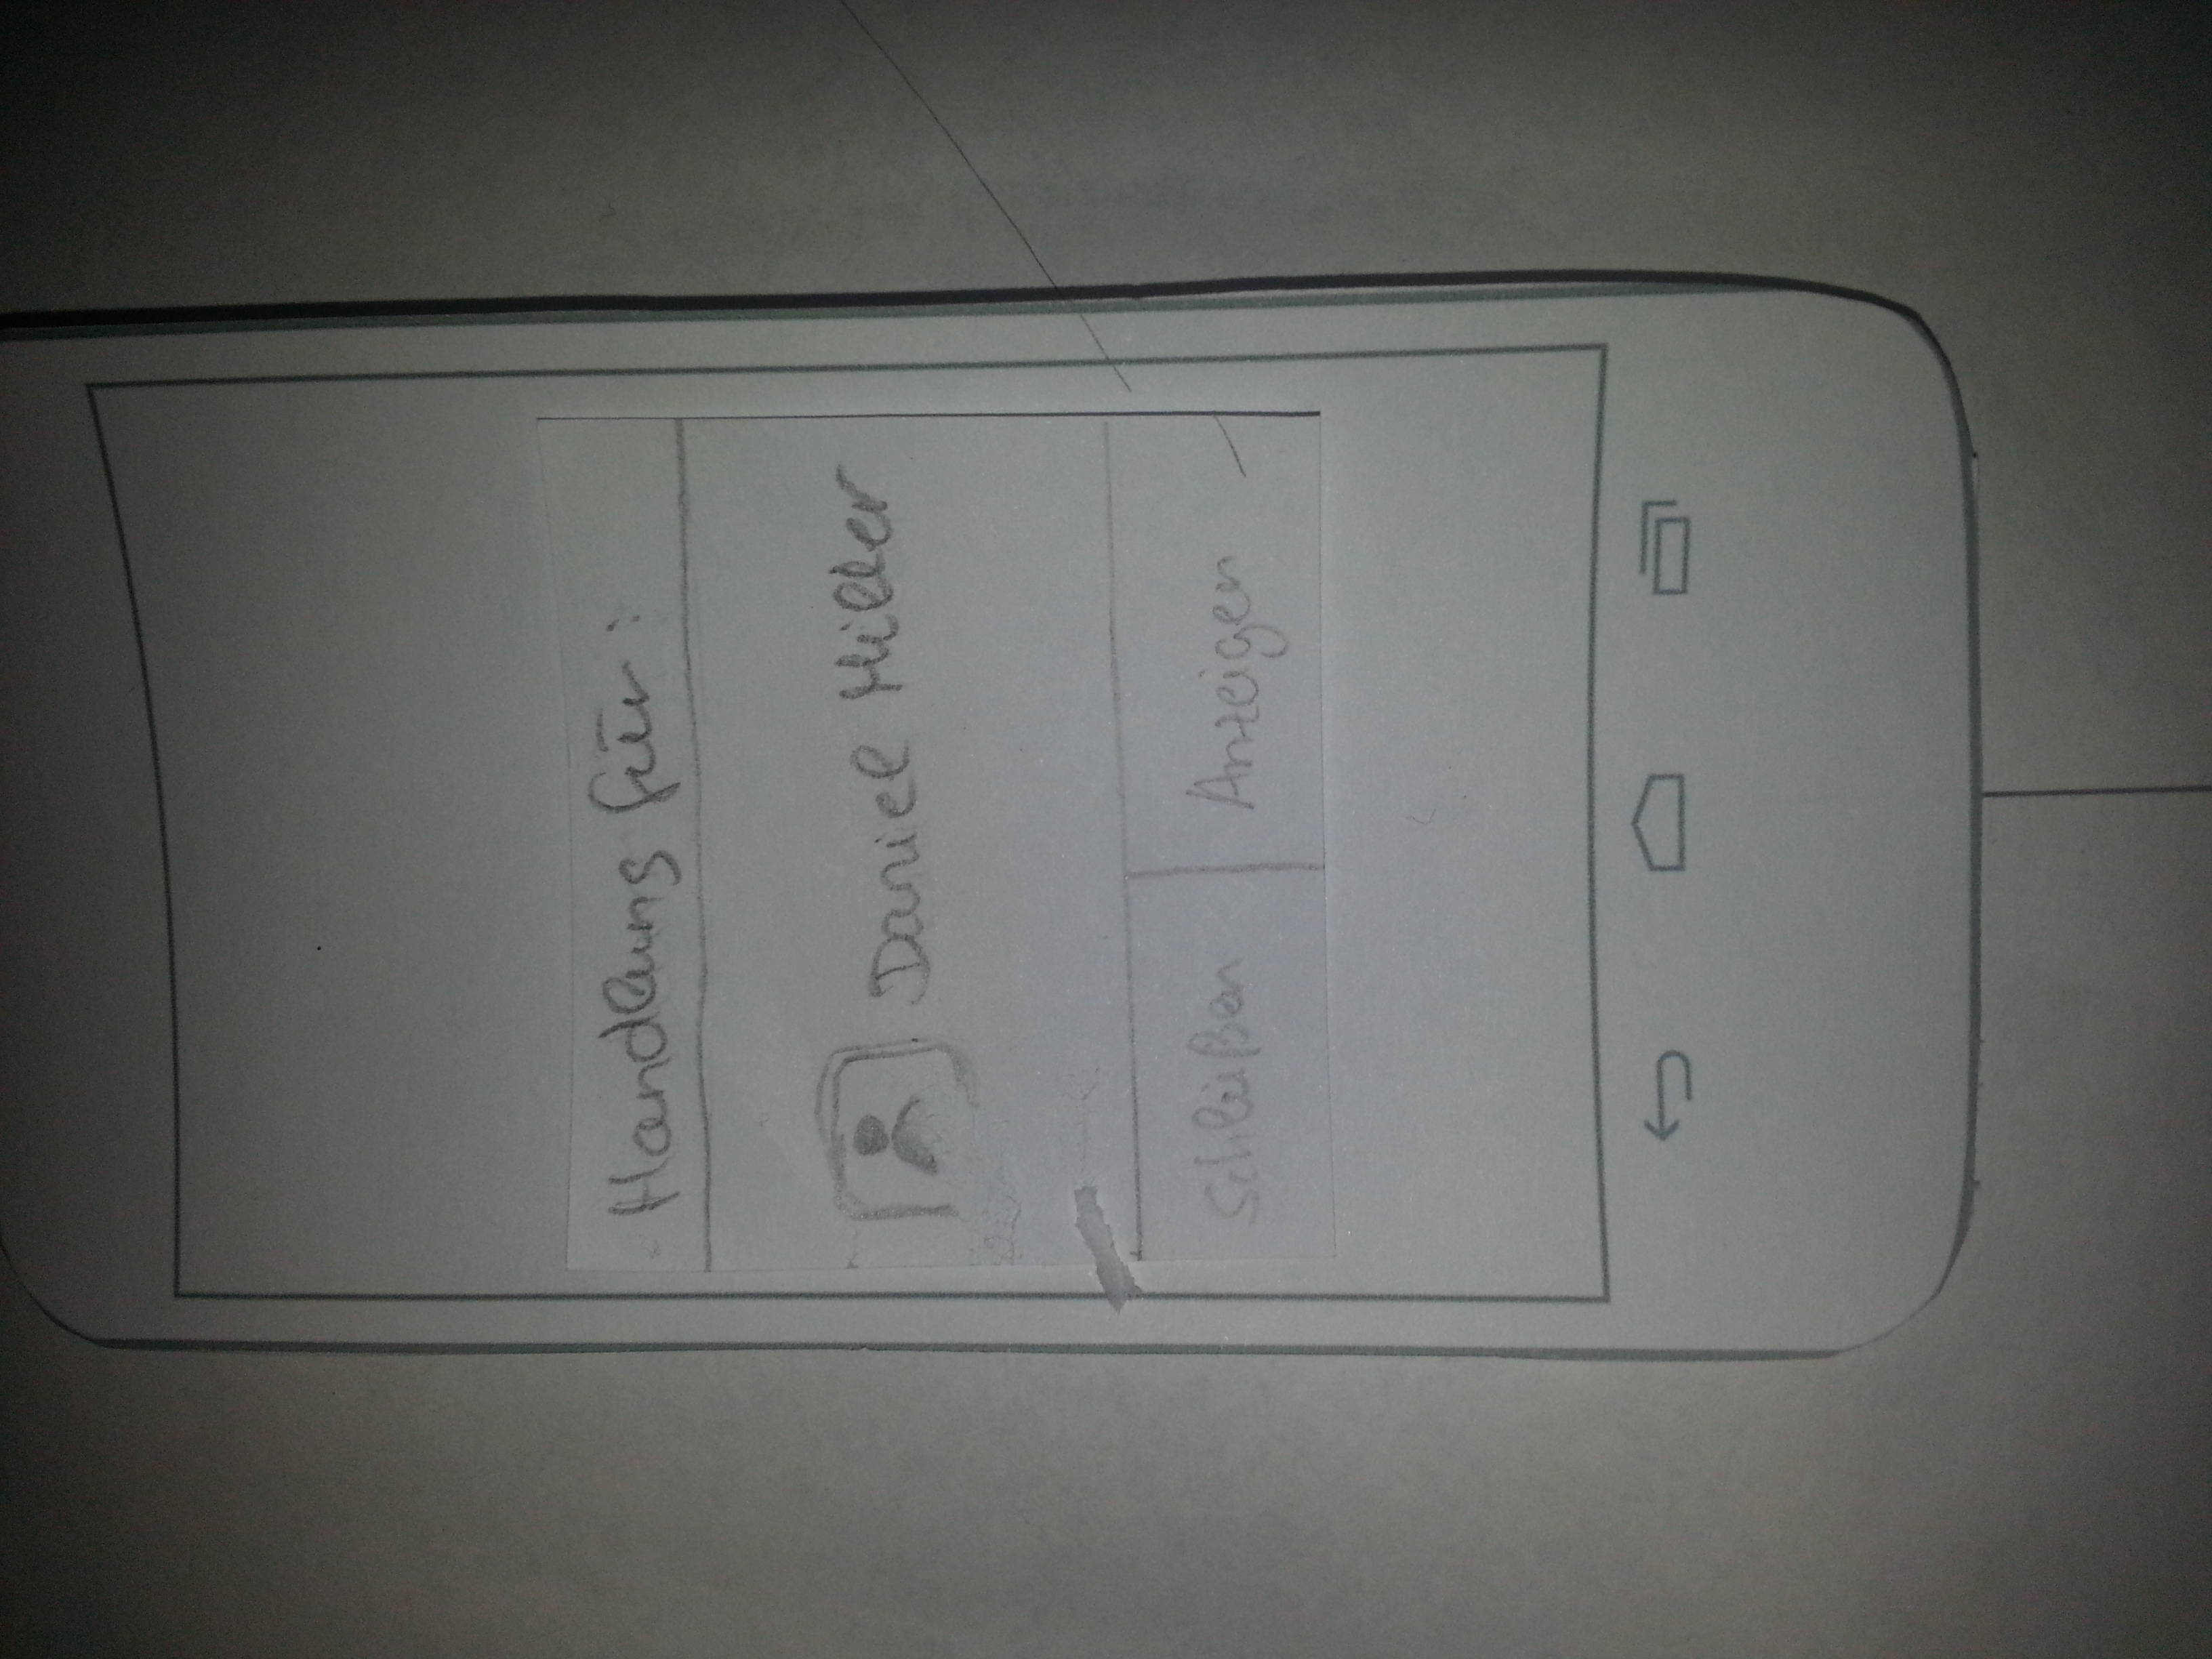 Handlung für:
Daniel Miller
Schleißen
Anzeigen